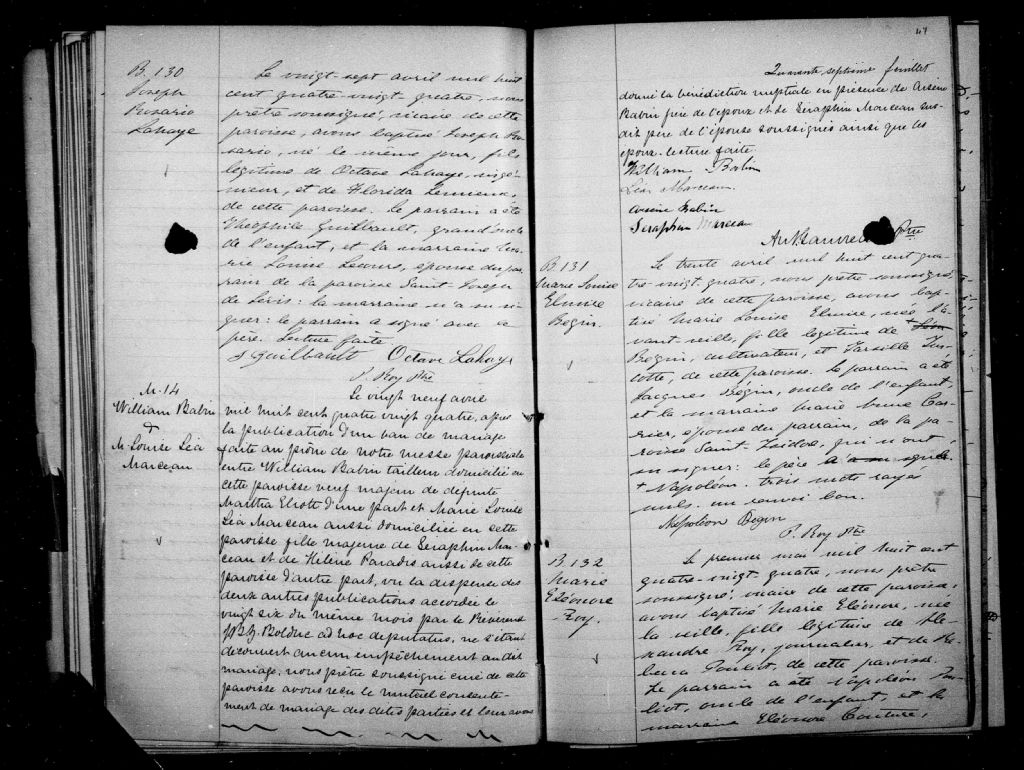 B. 130
Joseph
Rosario
Lahaye
Le vingt-sept avril mil huit
cent quatre-vingt-quatre, nous
prêtre soussigné, vicaire de cette
paroisse, avons baptisé Joseph Ro
sario, né le même jour, fils
légitime de Octave Lahaye, ingé-
nieur, et de Florida Lemieux,
de cette paroisse. Le parrain a été
Théophile Guilbault, grand'oncle
de l'enfant, et la marraine Ma
rie Louise Lecours, épouse du par
rain de la paroisse Saint-Joseph
de Lévis: la marraine n'a su si
gner: le parrain a signé avec le
père. Lecture faite
T. Guilbault Octave Lahaye
P. Roy Ptre
M. 14
William Babin
&
M. Louise Léa
Marceau
Le vingt neuf avril
mil huit cent quatre vingt quatre, après
la publication d'un ban de mariage
faite au prône de notre messe paroissiale
entre William Babin tailleur domicilié en
cette paroisse veuf majeur de défunte
Martha Eliott d'une part et Marie Louise
Léa Marceau aussi domiciliée en cette
paroisse fille majeure de Séraphin Mar-
ceau et de Hélène Paradis aussi de cette
paroisse d'autre part, vu la dispense des
deux autres publications accordée le
vingt six du même mois par le Révérend
J.B.Z. Bolduc ad hoc deputatus, ne s'étant
découvert aucun empêchement audit
mariage, nous prêtre soussigné curé de cette
paroisse avons reçu le mutuel consente-
ment de mariage des dites parties et leur avons
47
Quarante septième feuillet
donné la bénédiction nuptiale en présence de Arsène
Babin père de l'époux et de Séraphin Marceau sus-
dit père de l'épouse soussignés ainsi que les
époux. Lecture faite.
William Babin
Léa Marceau
Arsène Babin
Séraphin Marceau
Ptre
B. 131
Marie Louise
Elmire
Bégin.
Le trente avril mil huit cent qua
tre-vingt-quatre, nous prêtre soussigné,
vicaire de cette paroisse, avons bap
tisé Marie Louise Elmire, née l'a-
vant veille, fille légitime de
Bégin, cultivateur, et Tarsille Tur
cotte, de cette paroisse. Le parrain a été
Jacques Bégin, oncle de l'enfant,
et la marraine Marie Anne Car
rier, épouse du parrain, de la pa-
roisse Saint-Isidore, qui n'ont
su signer: le père a su signer.
+ Napoléon. trois mots rayés
nuls. un renvoi bon.
Napoléon Bégin
P. Roy Ptre
B. 132
Marie
Eléonore
Roy.
Le premier mai mil huit cent
quatre-vingt-quatre, nous prêtre
soussigné, vicaire de cette paroisse,
avons baptisé Marie Eléonore, née
la veille, fille légitime de Ale
xandre Roy, journalier, et de Re
becca Pouliot, de cette paroisse.
Le parrain a été Napoléon Pou
liot, oncle de l'enfant, et la
marraine Eléonore Couture,